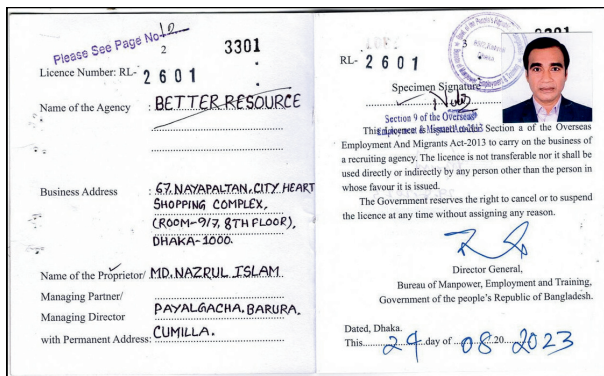 Please See Page No 10
2
3301
Licence Number: RL- 2601
Name of the Agency : BETTER RESOURCE
Business Address : 67, NAYAPALTAN, CITY HEART
SHOPPING COMPLEX,
(ROOM-9/7, 8TH FLOOR),
DHAKA-1000.
Name of the Proprietor/ MD. NAZRUL ISLAM
Managing Partner/
Managing Director PAYALGACHA, BARURA,
with Permanent Address: CUMILLA.
3
RL- 2601
Specimen Signature
Section 9 of the Overseas
Employment & Migrants Act-2013
This Licence is Issued under Section a of the Overseas
Employment And Migrants Act-2013 to carry on the business of
a recruiting agency. The licence is not transferable nor it shall be
used directly or indirectly by any person other than the person in
whose favour it is issued.
The Government reserves the right to cancel or to suspend
the licence at any time without assigning any reason.
Director General,
Bureau of Manpower, Employment and Training,
Government of the people's Republic of Bangladesh.
Dated, Dhaka.
This 29 day of 08 20 2023